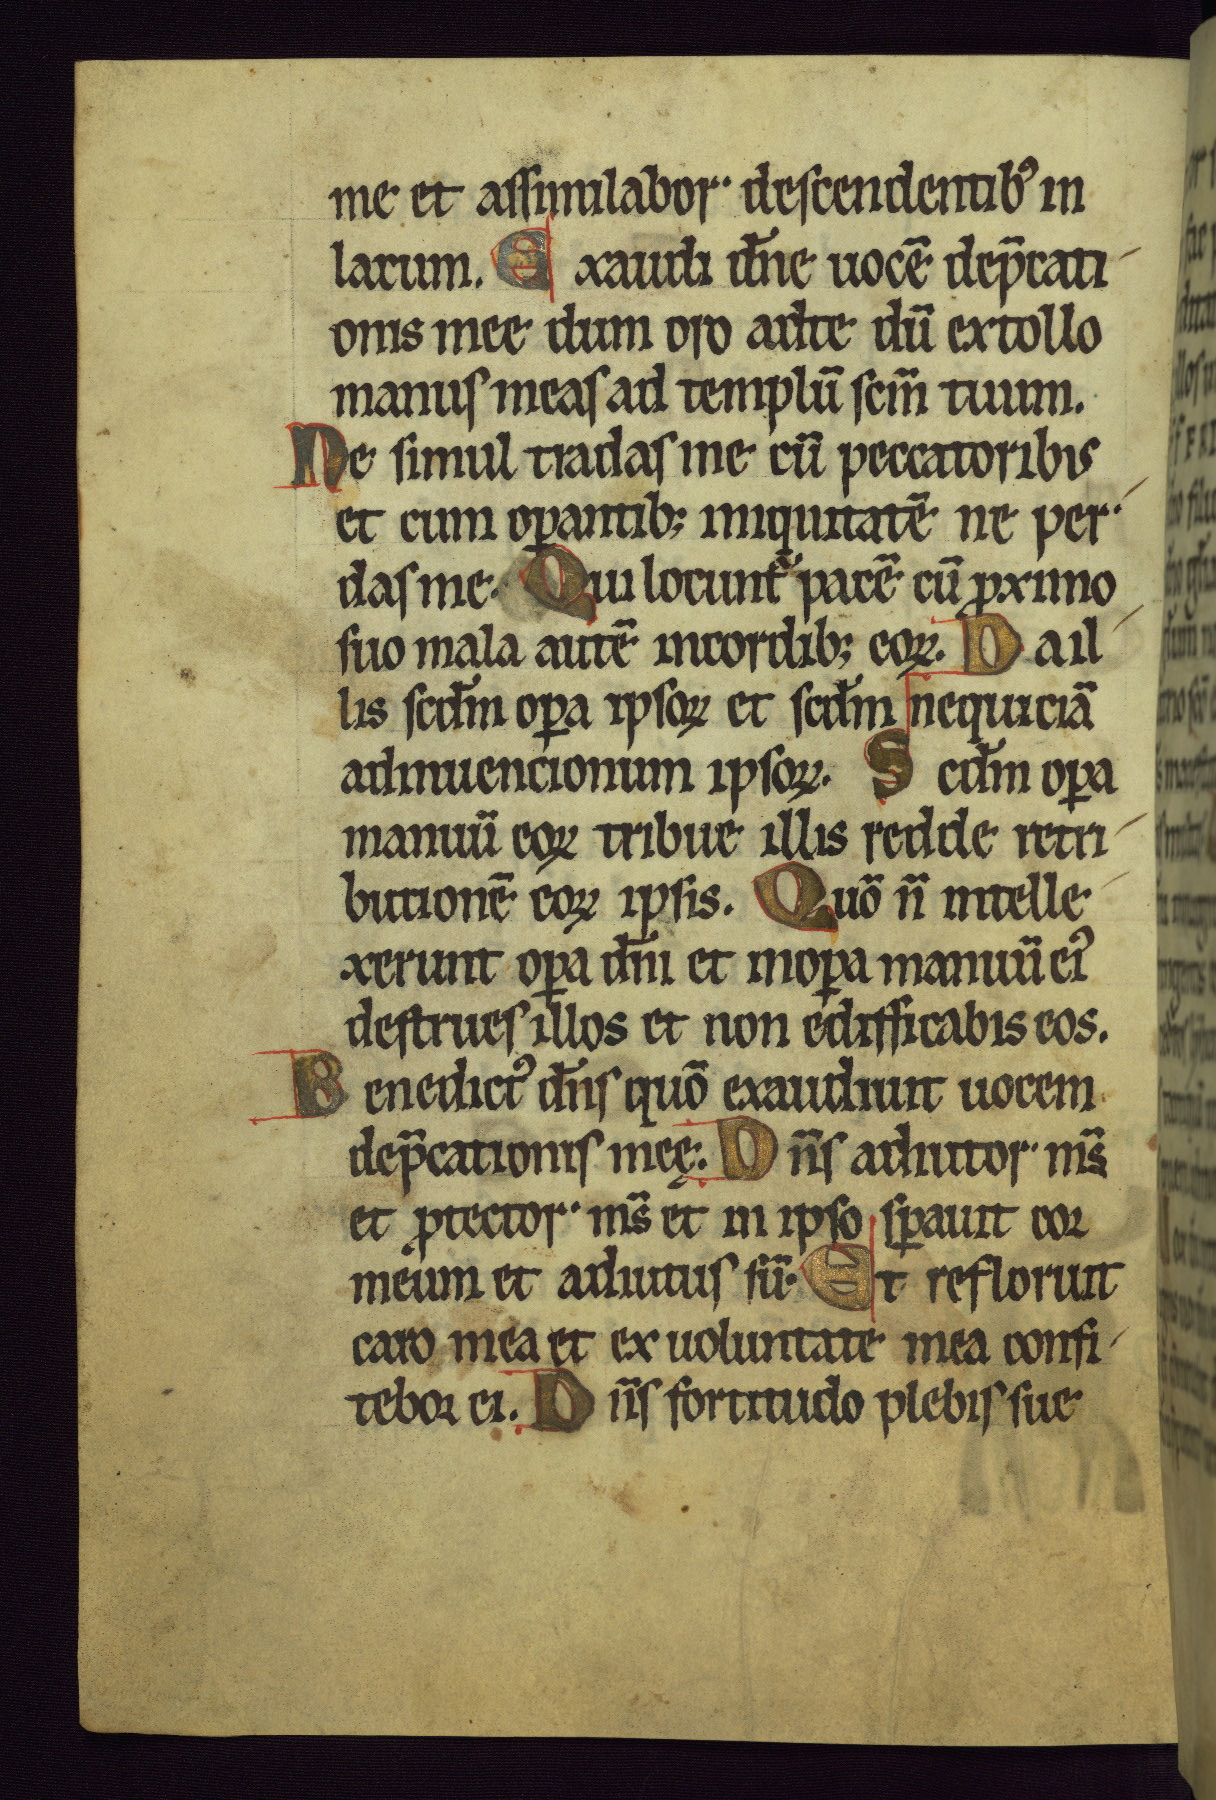 me et assimilabor· descendentibꝰ in
lacum. Exaudi dn̄e uocē dep̄cati-
onis mee dum oro ad te dū extollo
manus meas ad templū scm̄ tuum.
Ne simul tradas me cū peccatoribus
et cum oꝑantib; iniquitatē ne per-
das me. Qui locunt᷑ pacē cū ꝓximo
suo mala autē in cordib; eoꝝ. Da il-
lis scdm̄ oꝑa ipsoꝝ et scdm̄ nequiciā
adinuencionum ipsoꝝ. Scdm̄ oꝑa
manuū eoꝝ tribue illis redde retri-
butionē eoꝝ ipsis. Quō n̄ intelle-
xerunt oꝑa dn̄i et in oꝑa manuū eiꝰ
destrues illos et non edifficabis eos.
Benedictꝰ dn̄s quō exaudiuit uocem
dep̄cationis meę. Dn̄s adiutor ms̄
et ꝓtector ms̄ et in ipso sꝑauit cor
meum et adiutus sū. Et refloruit
caro mea et ex uoluntate mea confi-
tebor ei. Dn̄s fortitudo plebis sue